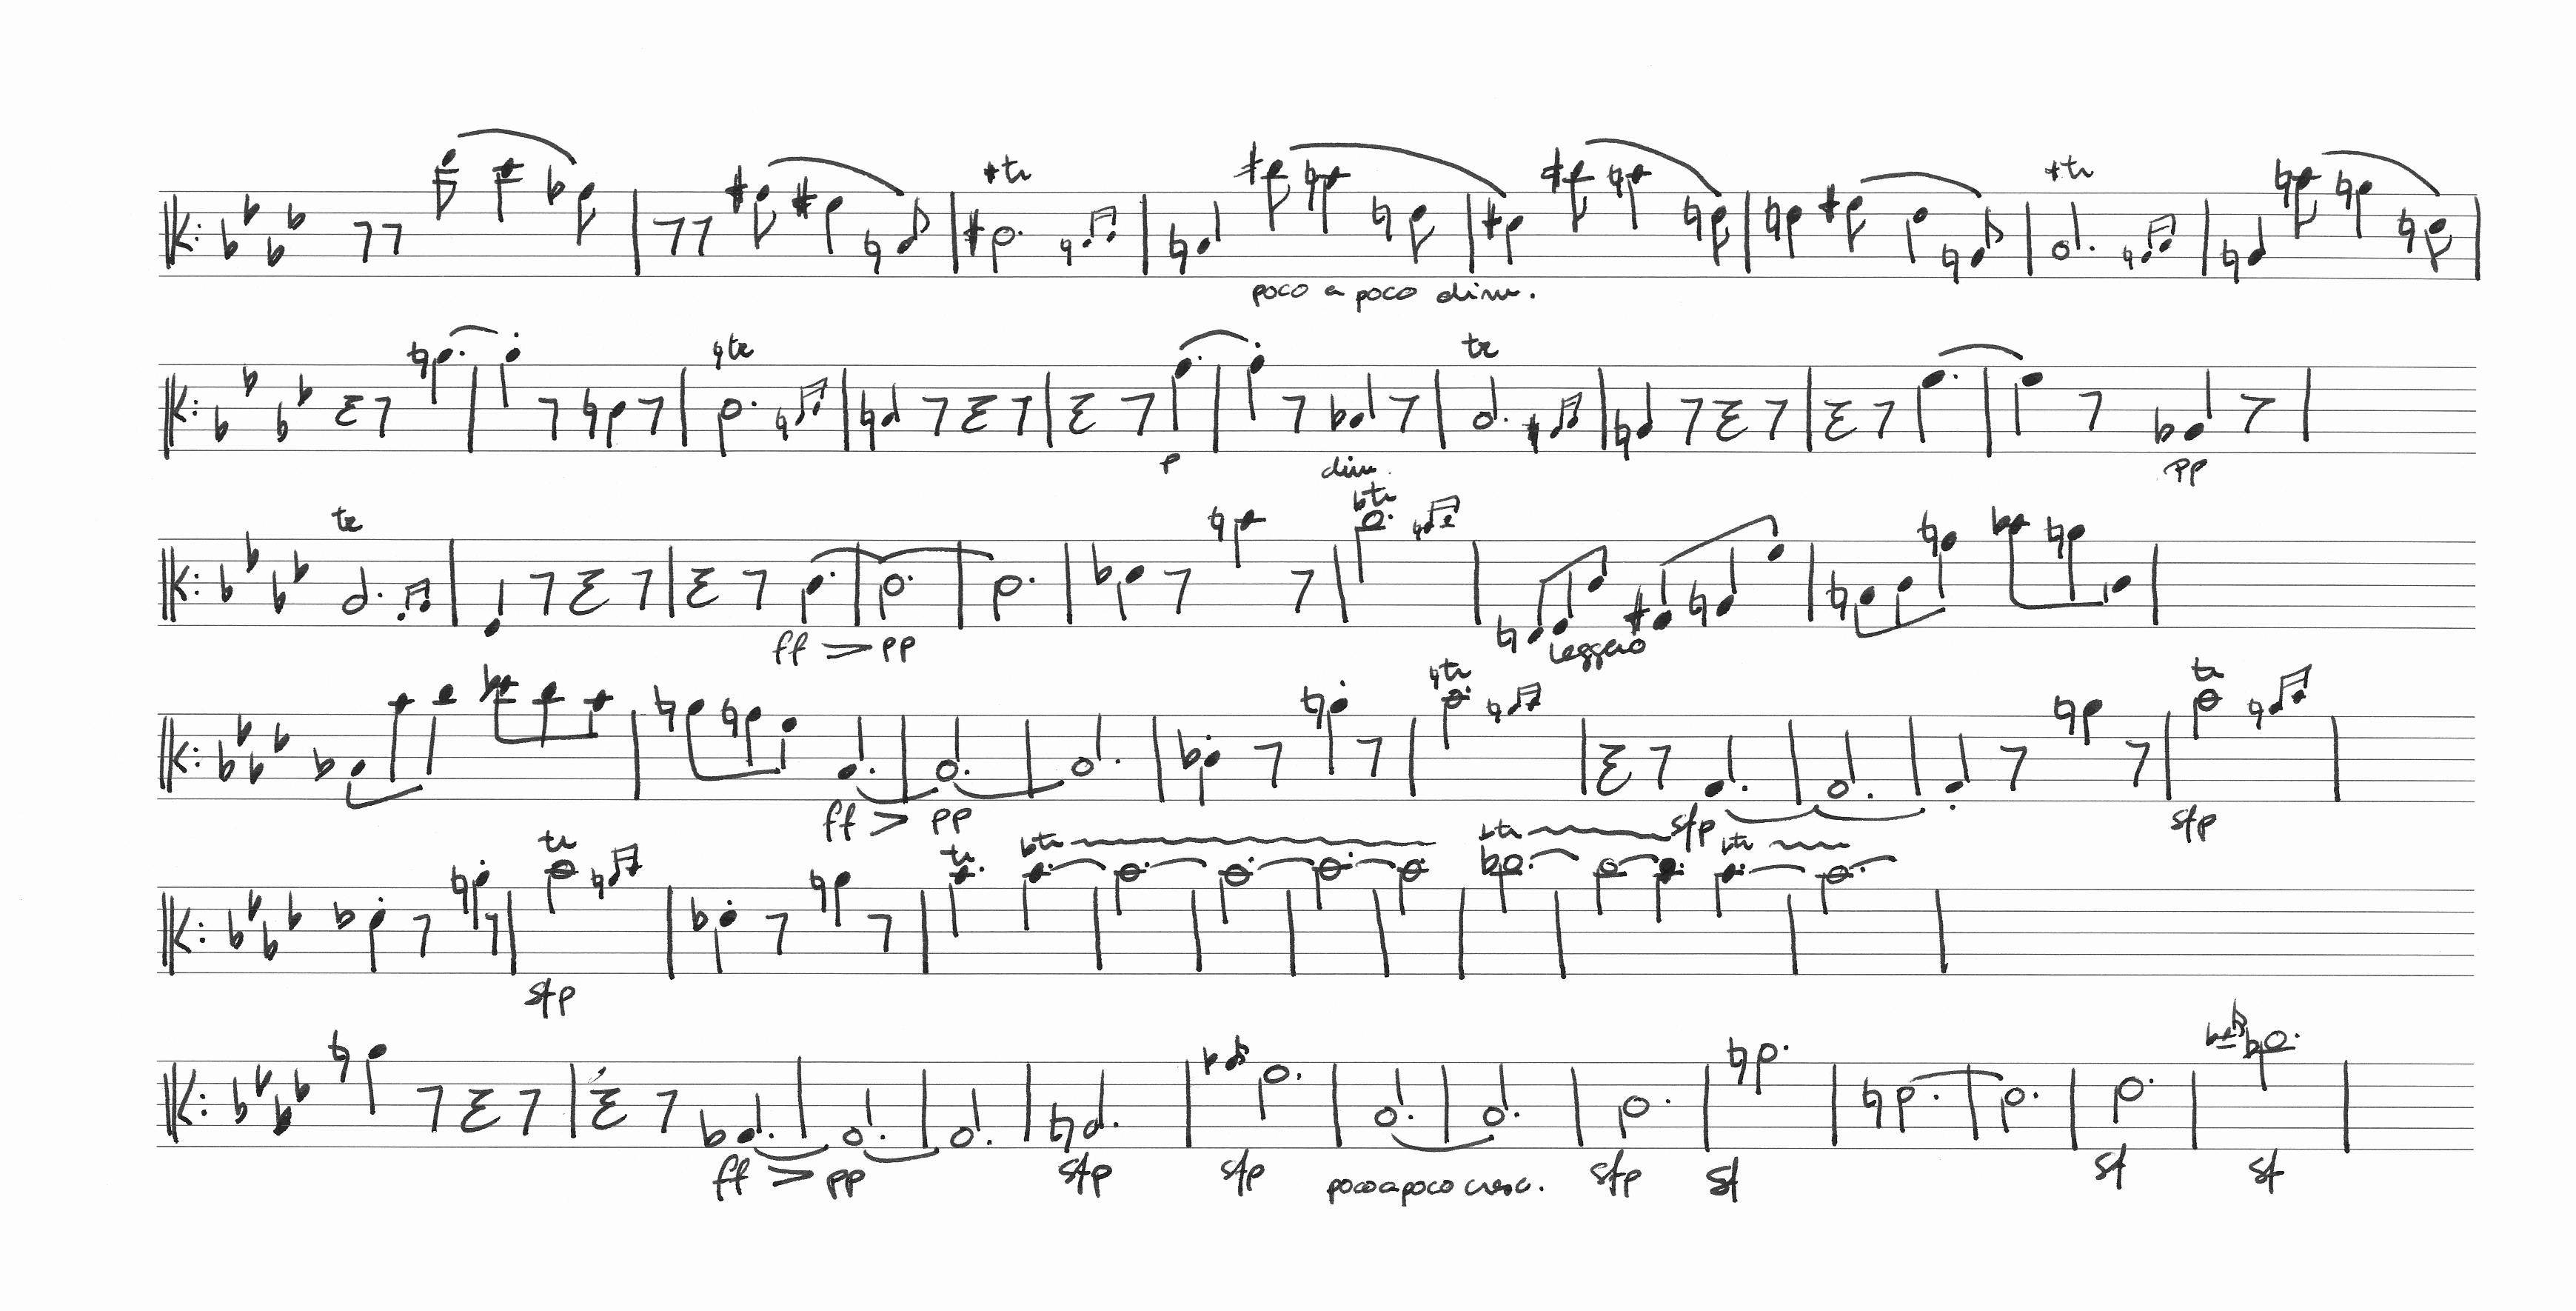 tr
tr
poco a poco dim.
tr
tr
p
dim.
pp
tr
tr
ff pp
leggero
tr
tr
ff pp
sfp
sfp
tr
tr
tr
tr
tr
sfp
ff pp
sfp
sfp
poco a poco cresc.
sfp
sf
sf
sf